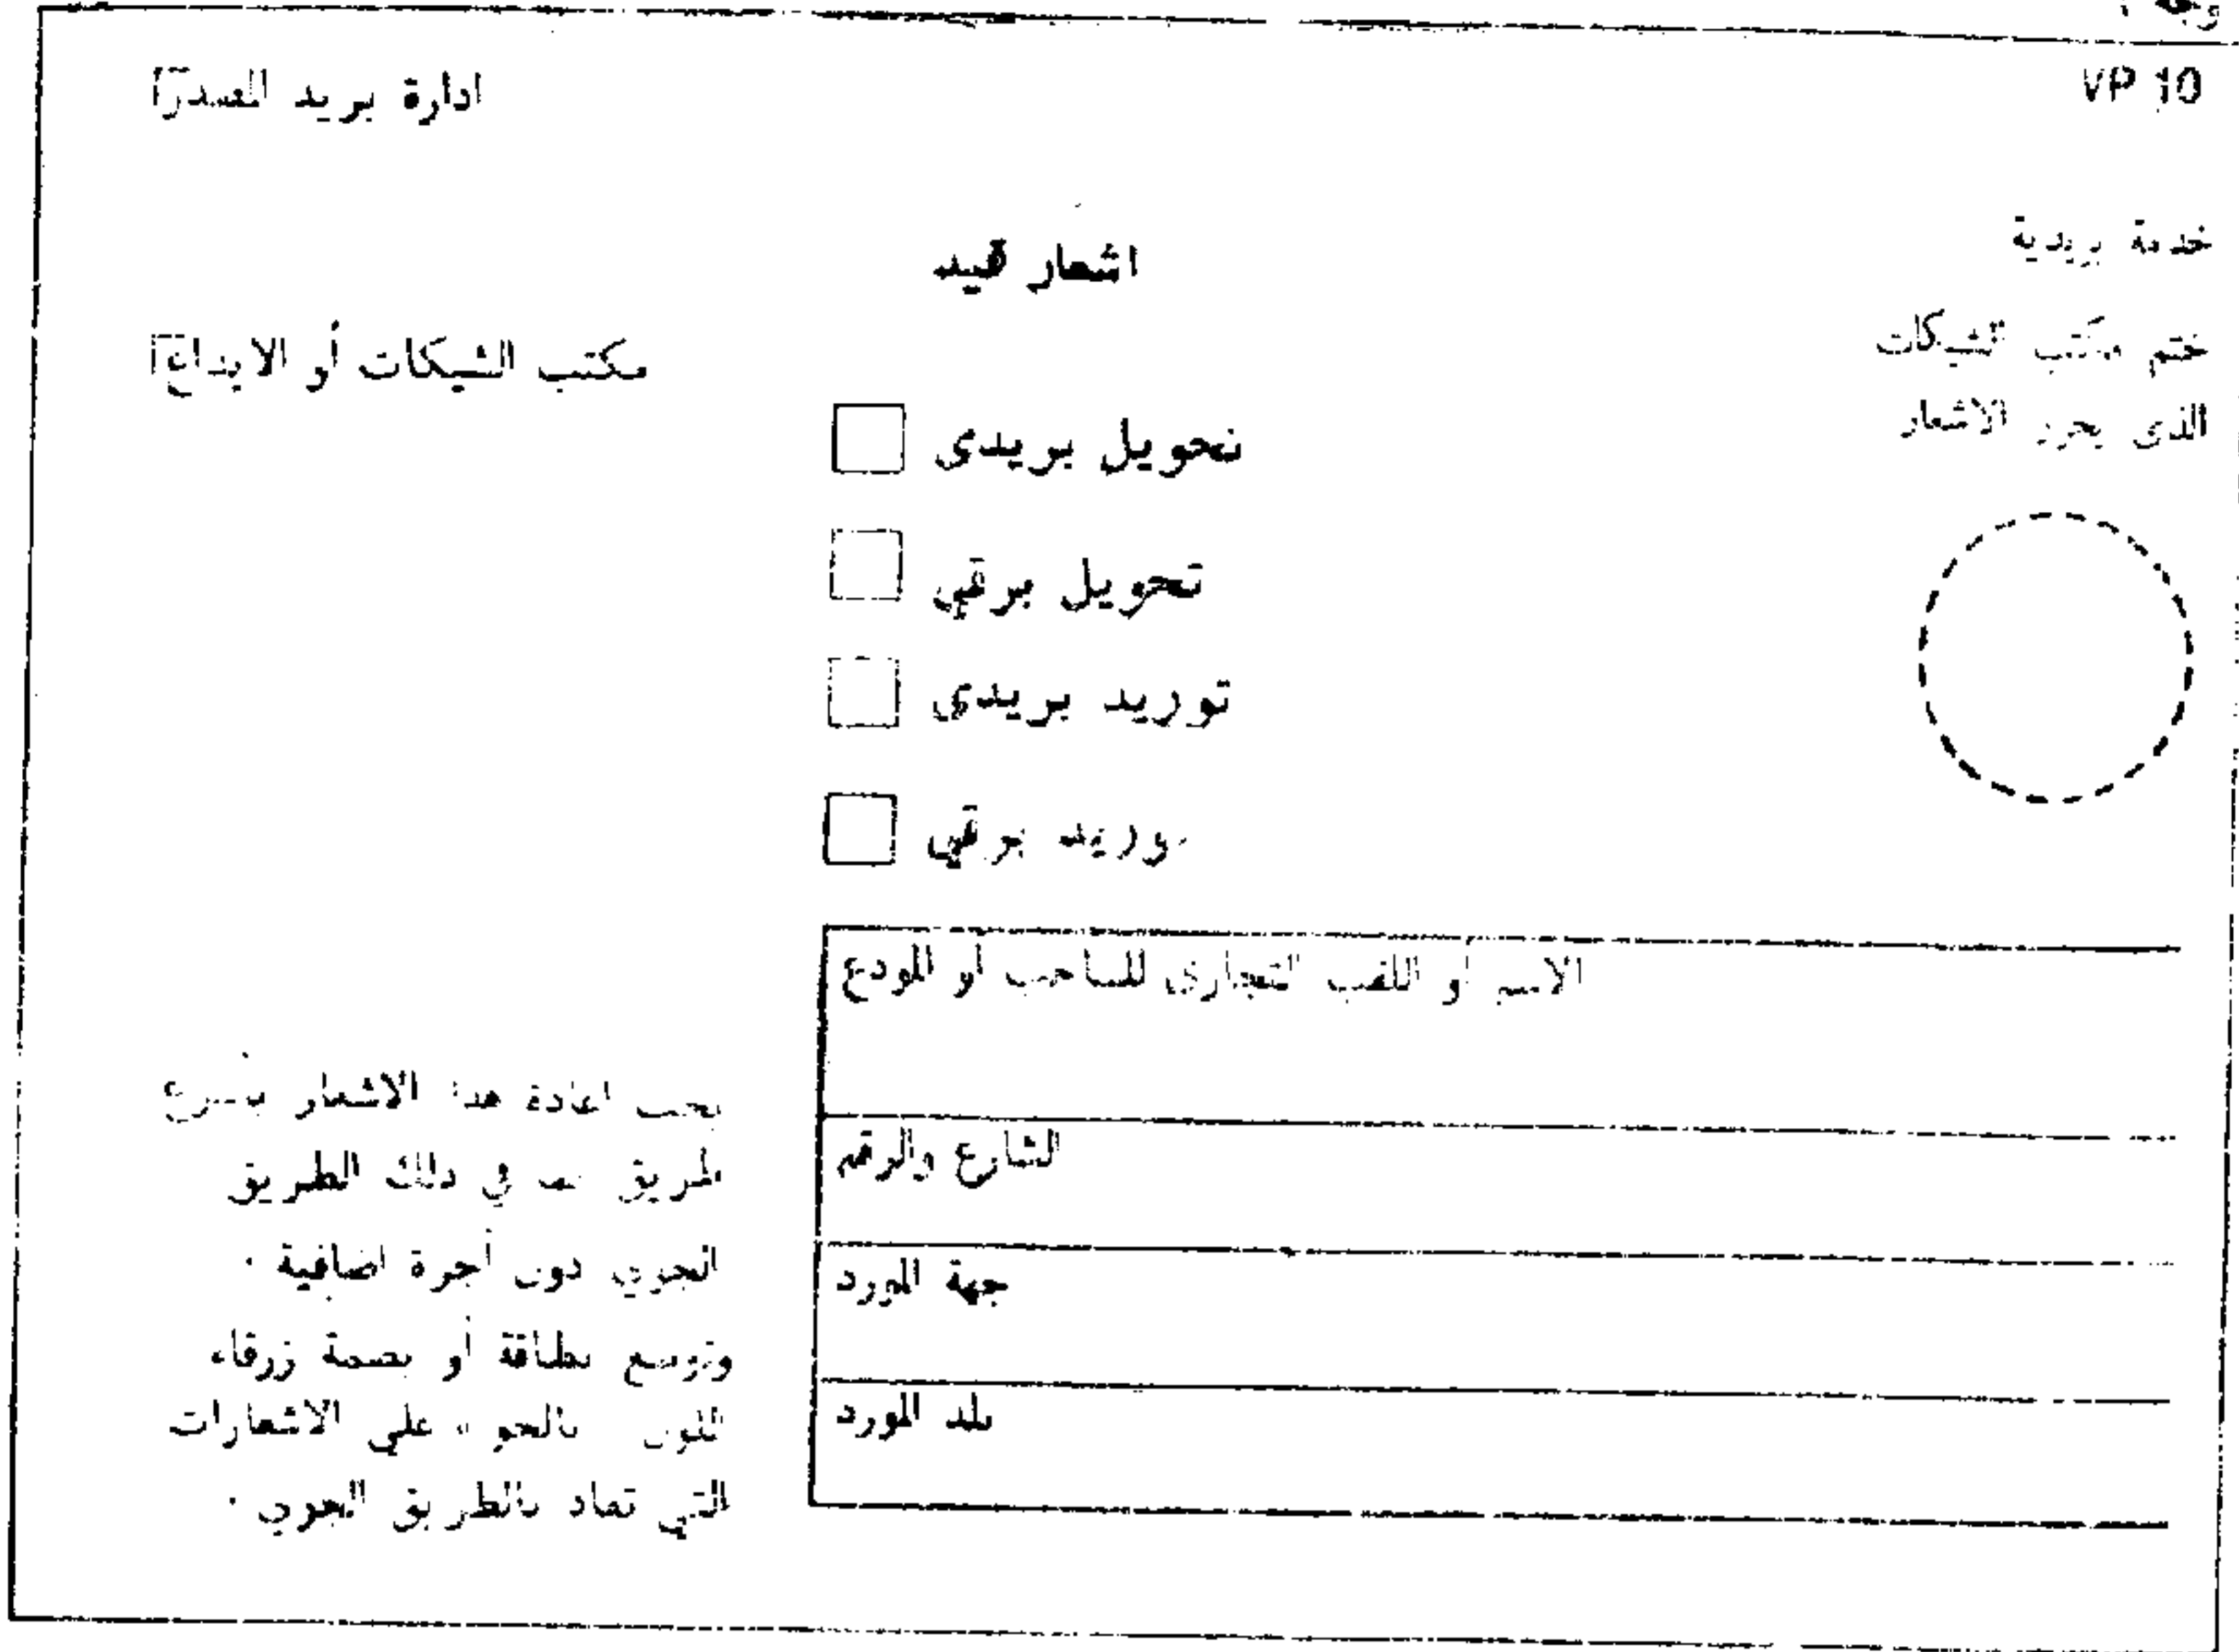 VP 10
ادارة بريد المصدر
خدمة بريدية
اشعار قيد
ختم مكتب الشيكات
الذى يحرر الاشعار
مكتب الشيكات أو الايداع
تحويل بريدى
تحويل برقي
توريد بريدى
توريد برقي
الاسم أو اللقب التجارى للساحب أو المودع
الشارع والرقم
جهة المورد
بلد المورد
يجب اعادة هذا الاشعار بأسرع
طريق بما في ذلك الطريق
الجوى دون أجرة اضافية .
وتوضع بطاقة أو بصمة زرقاء
اللون بالجو على الاشعارات
التي تعاد بالطريق الجوى .